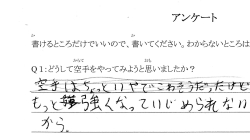 アンケート
書けるところだけでいいので、書いてください。わからないところは
Q1：どうして空手をやってみようと思いましたか？
空手はちょっといやでこわそうだったけど
もっと強くなっていじめられない
から。